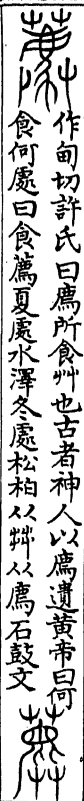 薦
作甸切許氏曰廌所食艸也古者神人以廌遺黃帝曰何
食何處曰食薦夏處水澤冬處松柏从艸从廌石鼓文
薦